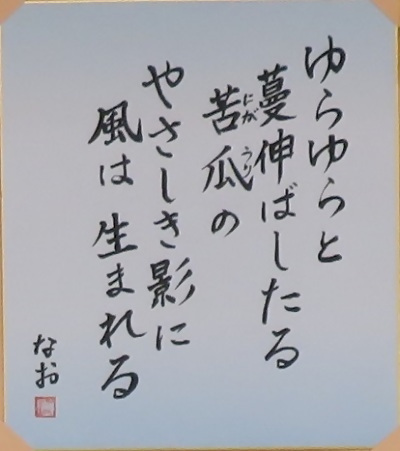 ゆらゆらと
蔓伸ばしたる
苦瓜の
にが うり
やさしき影に
風は 生まれる
なお